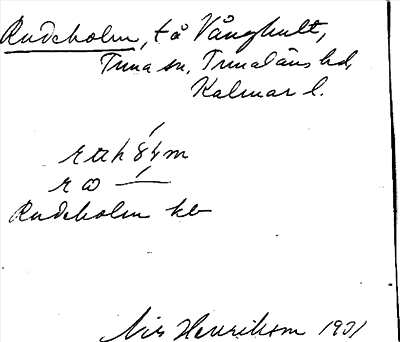 Rudeholm, t å Vånghult,
Tuna sn, Tunaläns hd,
Kalmar l.
Rudeholm kb
Nils Henrikson 1931